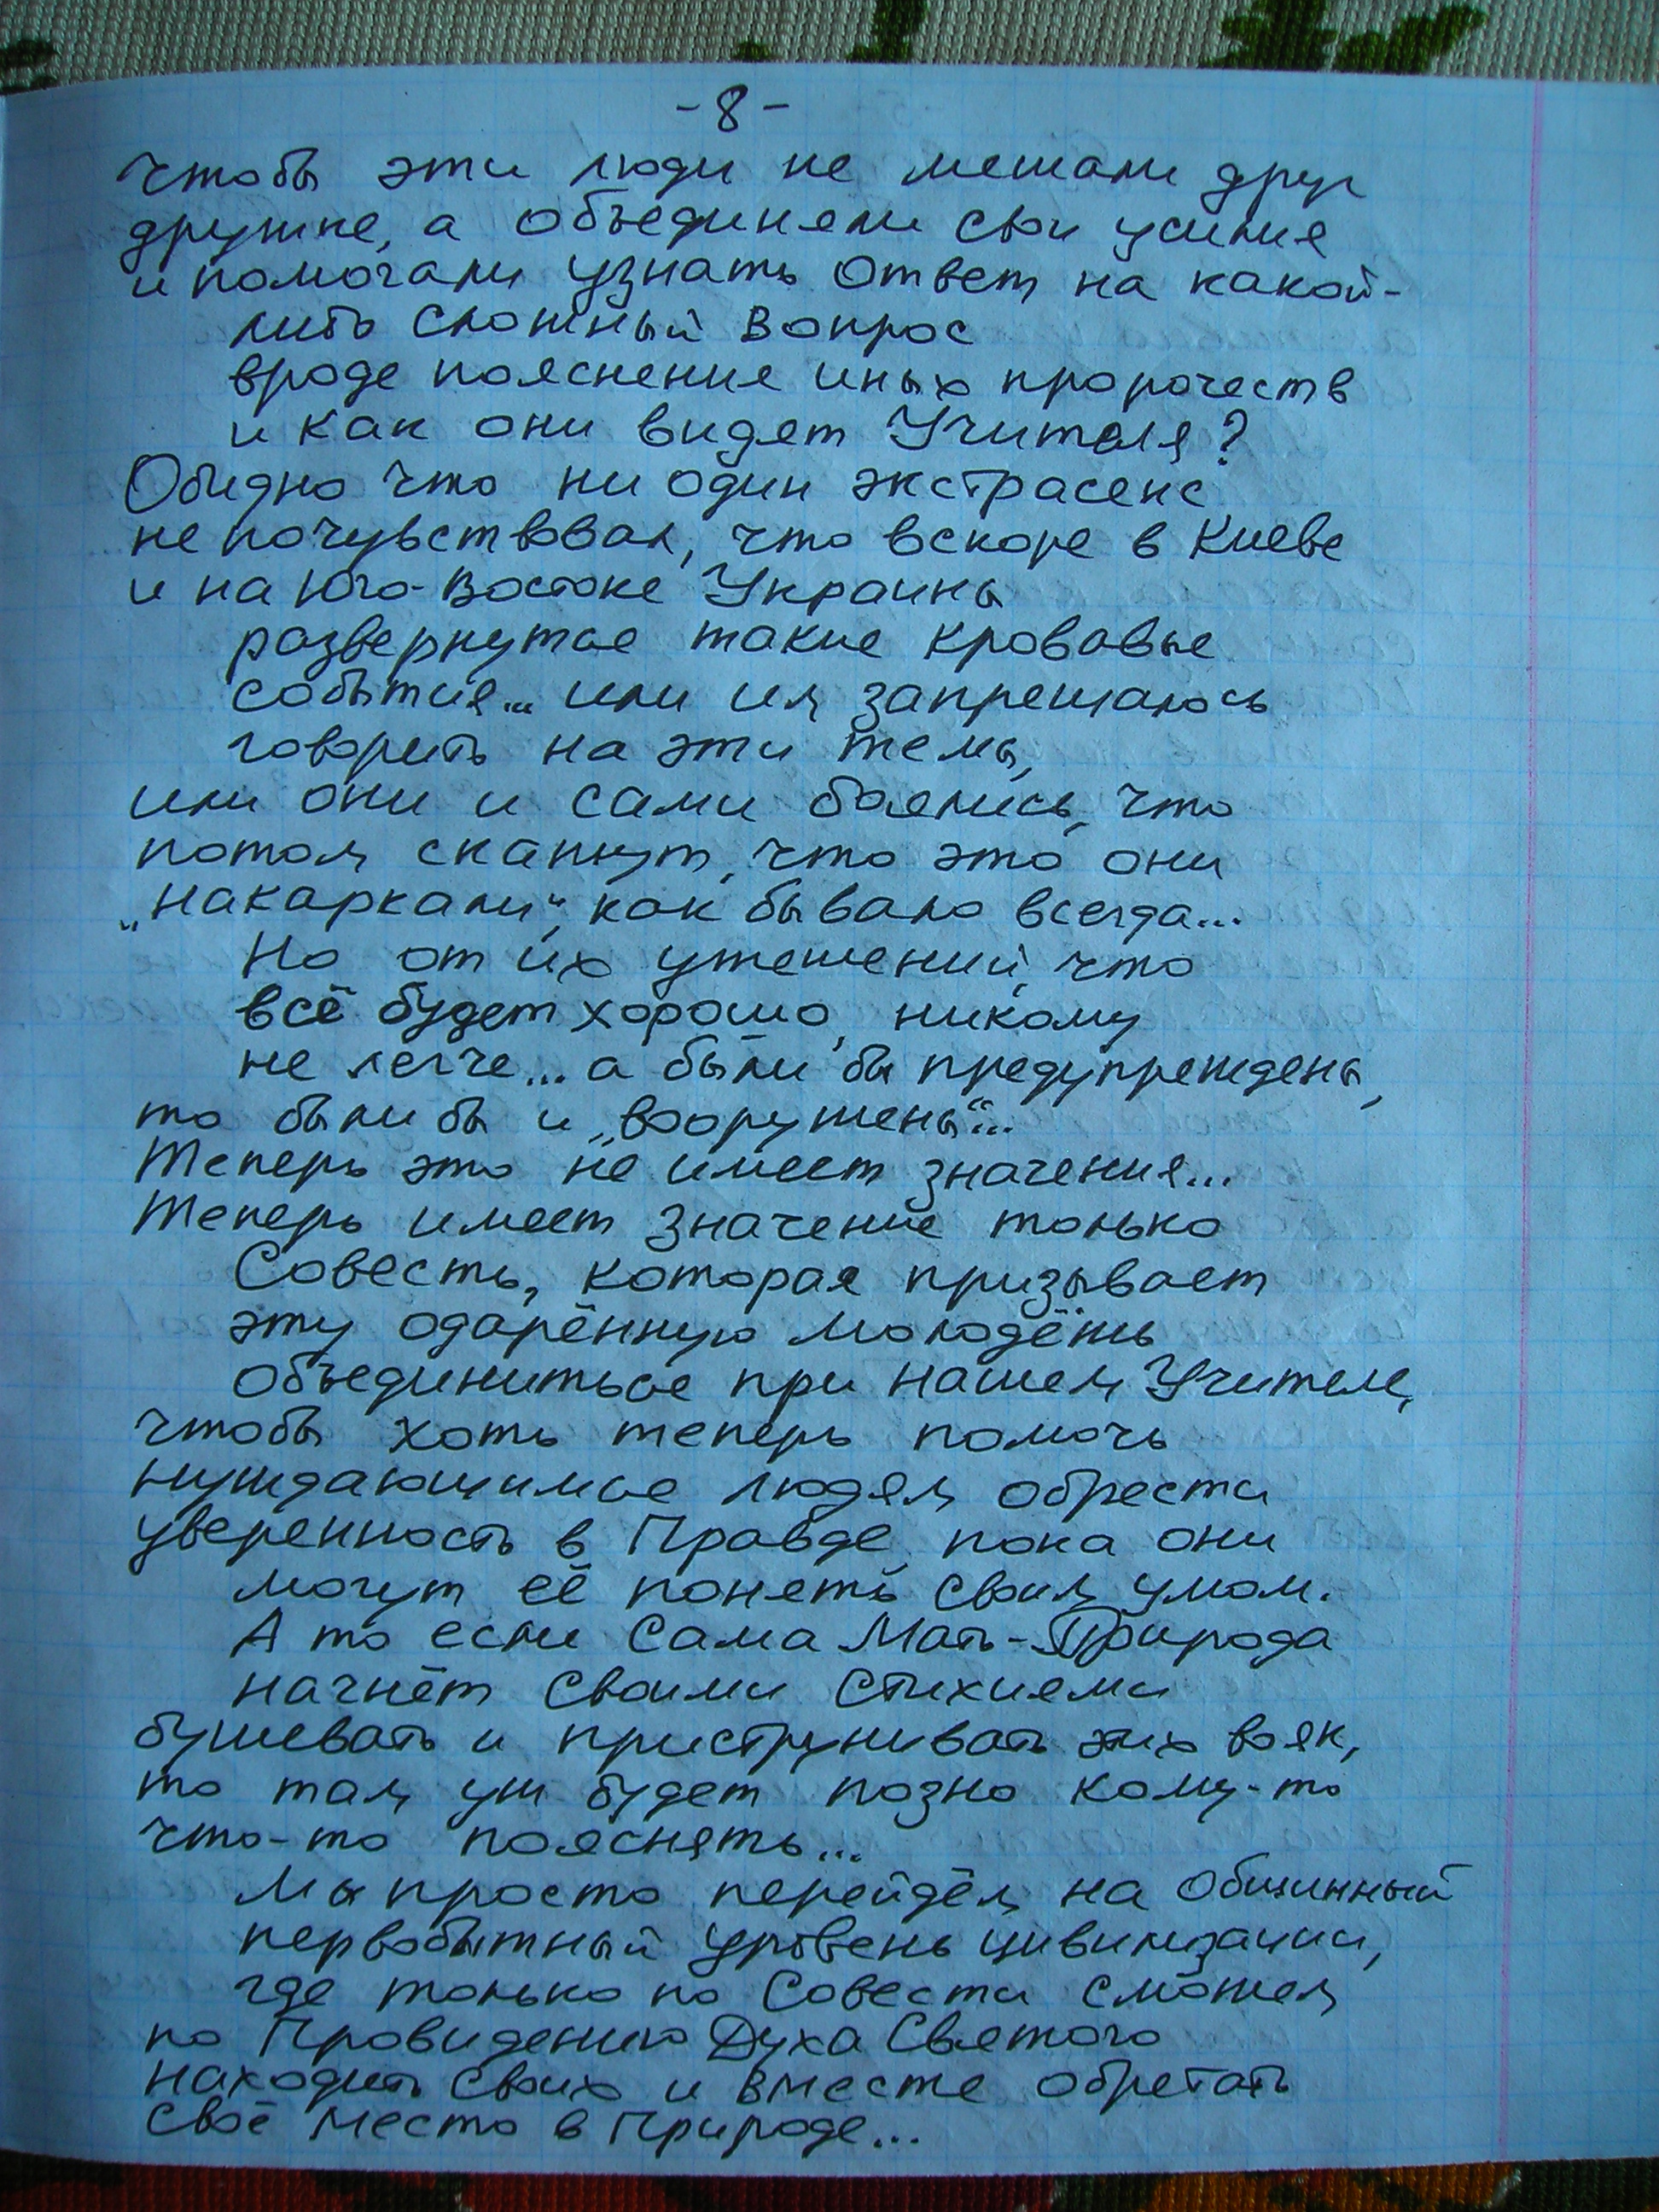 -8-
чтобы эти люди не мешали друг
дружке, а объединяли свои усилия
и помогали узнать ответ на какой-
либо сложный вопрос
вроде пояснения иных пророчеств
и как они видят Учителя?
Обидно что ни один экстрасенс
не почувствовал, что вскоре в Киеве
и на Юго-Востоке Украины
развернутся такие кровавые
события... или им запрещалось
говорить на эти темы,
или они и сами боялись, что
потом скажут, что это они
„накаркали“, как бывало всегда...
Но от их утешений, что
всё будет хорошо, никому
не легче... а были бы предупреждены,
то были бы и „вооружены“...
Теперь это не имеет значения...
Теперь имеет значение только
Совесть, которая призывает
эту одарённую молодёжь
объединиться при нашем Учителе,
чтобы хоть теперь помочь
нуждающимся людям обрести
уверенность в Правде, пока они
могут её понять своим умом.
А то если Сама Мать-Природа
начнёт своими стихиями
бушевать и приструнивать этих вояк,
то там уж будет поздно кому-то
что-то пояснять...
Мы просто перейдём на общинный
первобытный уровень цивилизации,
где только по Совести сможем
по Провидению Духа Святого
находить своих и вместе обретать
своё место в Природе...